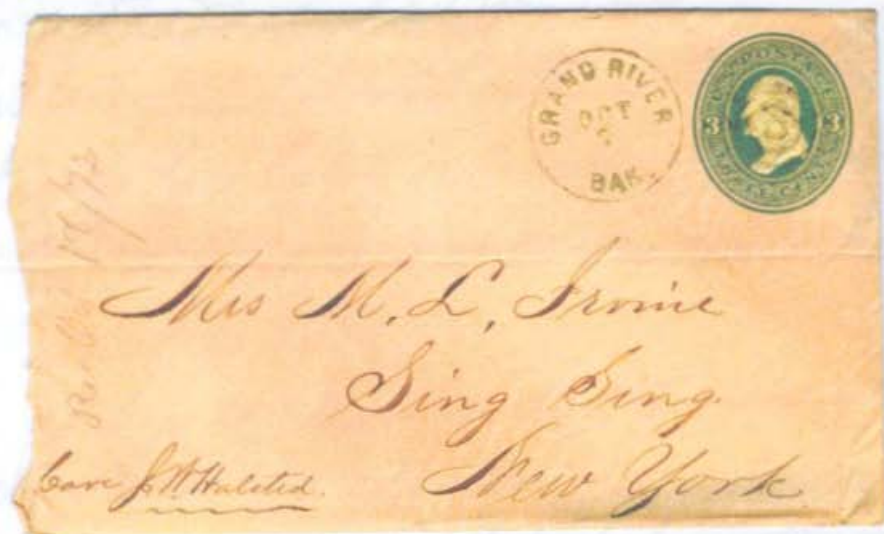 GRAND RIVER
OCT
DAK.
U.S. POSTAGE
3 3
THREE CENTS
Mrs M. L. Irvine
Sing Sing
New York
Care J. W. Halsted.